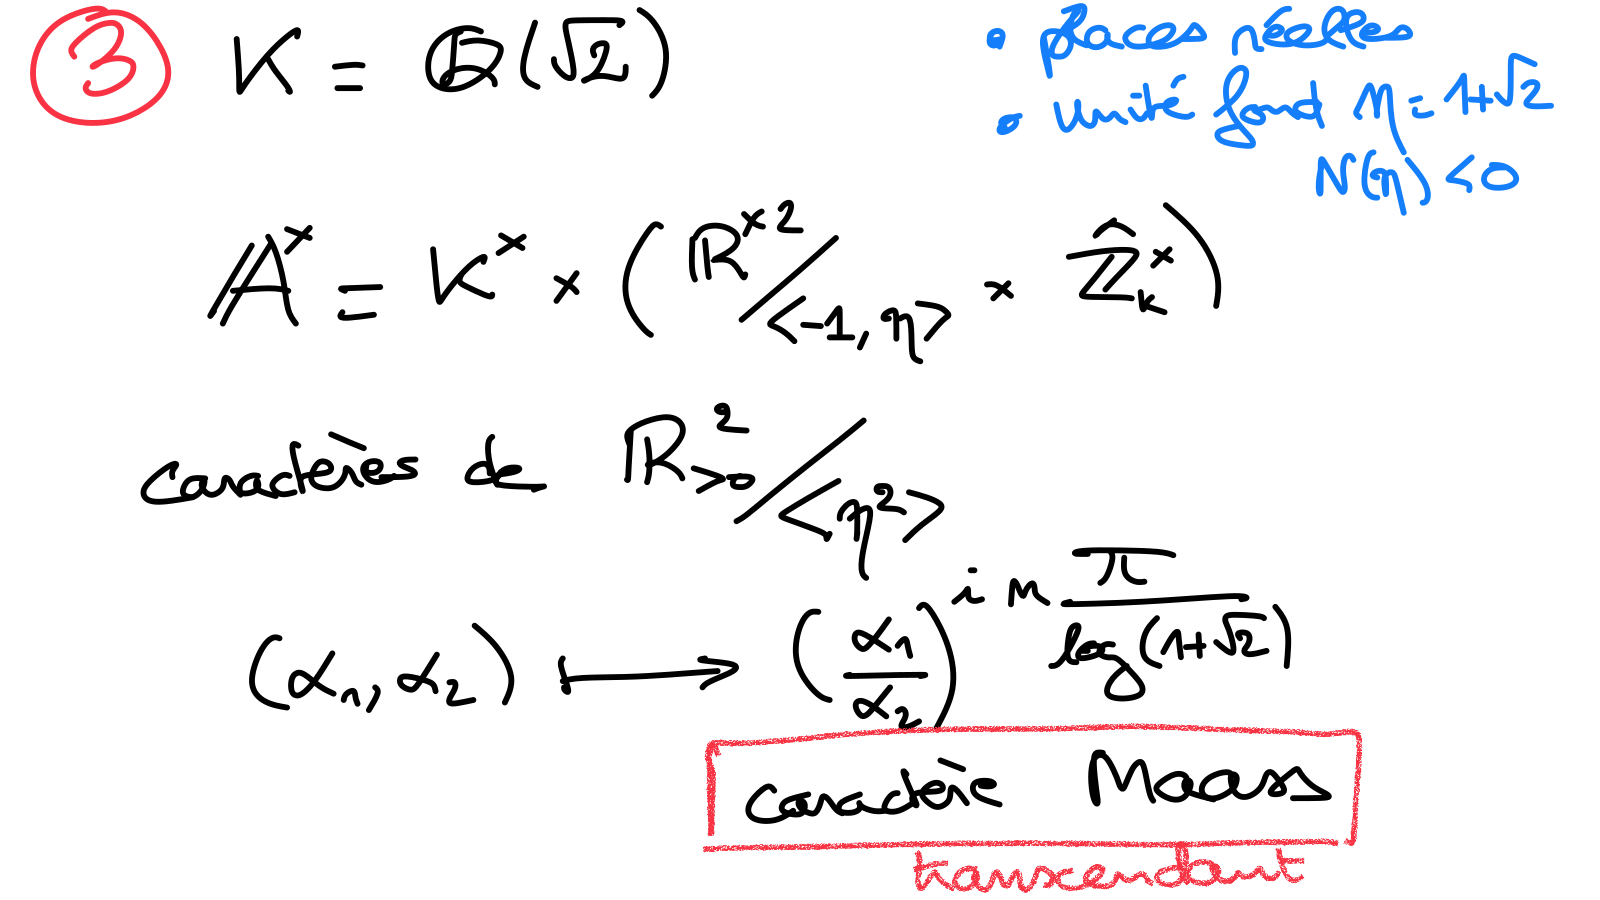 ③ K = ℚ(√2)
• places réelles
• unité fond η = 1+√2
N(η) < 0
𝔸^× = K^× × (ℝ^{×2}/<-1, η> × Ẑ_K^×)
caractères de ℝ_{>0}^2/<η^2>
(α_1, α_2) ⟼ (α_1/α_2)^{i m π/log(1+√2)}
caractère Maass
transcendant